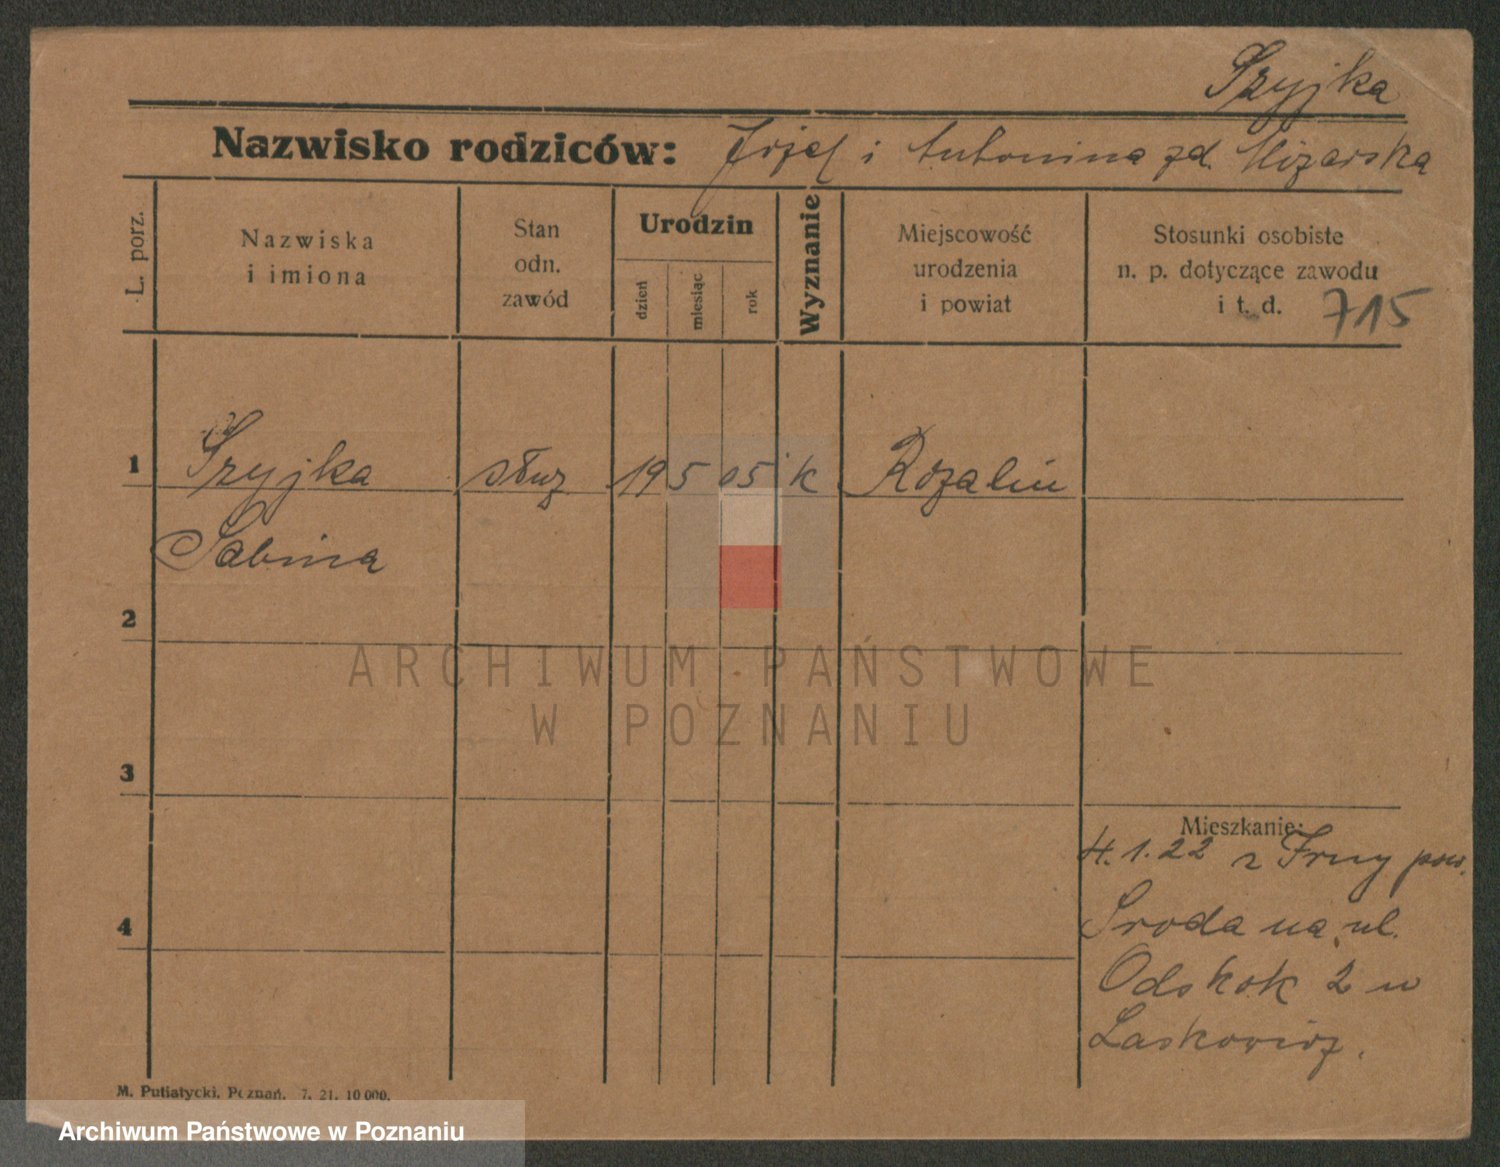 Szyjka
Nazwisko rodziców: Józef i Antonina zd. Mizerska
L. porz.
Nazwiska
i imiona
Stan
odn.
zawód
Urodzin
dzień
miesiąc
rok
Wyznanie
Miejscowość
urodzenia
i powiat
Stosunki osobiste
n. p. dotyczące zawodu
i t. d. 715
1 Szyjka służ 19 5 05 k Rozalin
Sabina
2
3
4
ARCHIWUM PAŃSTWOWE
W POZNANIU
Mieszkanie:
4.1.22 z pow.
Środa na ul.
Odskok 2 u
M. Putiatycki, Poznań. 7. 21. 10 000.
Archiwum Państwowe w Poznaniu